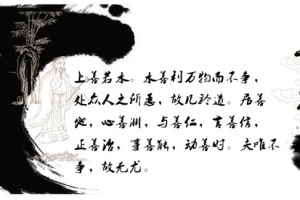 上善若水。水善利万物而不争，
处众人之所恶，故几於道。居善
地，心善渊，与善仁，言善信，
正善治，事善能，动善时。夫唯不
争，故无尤。